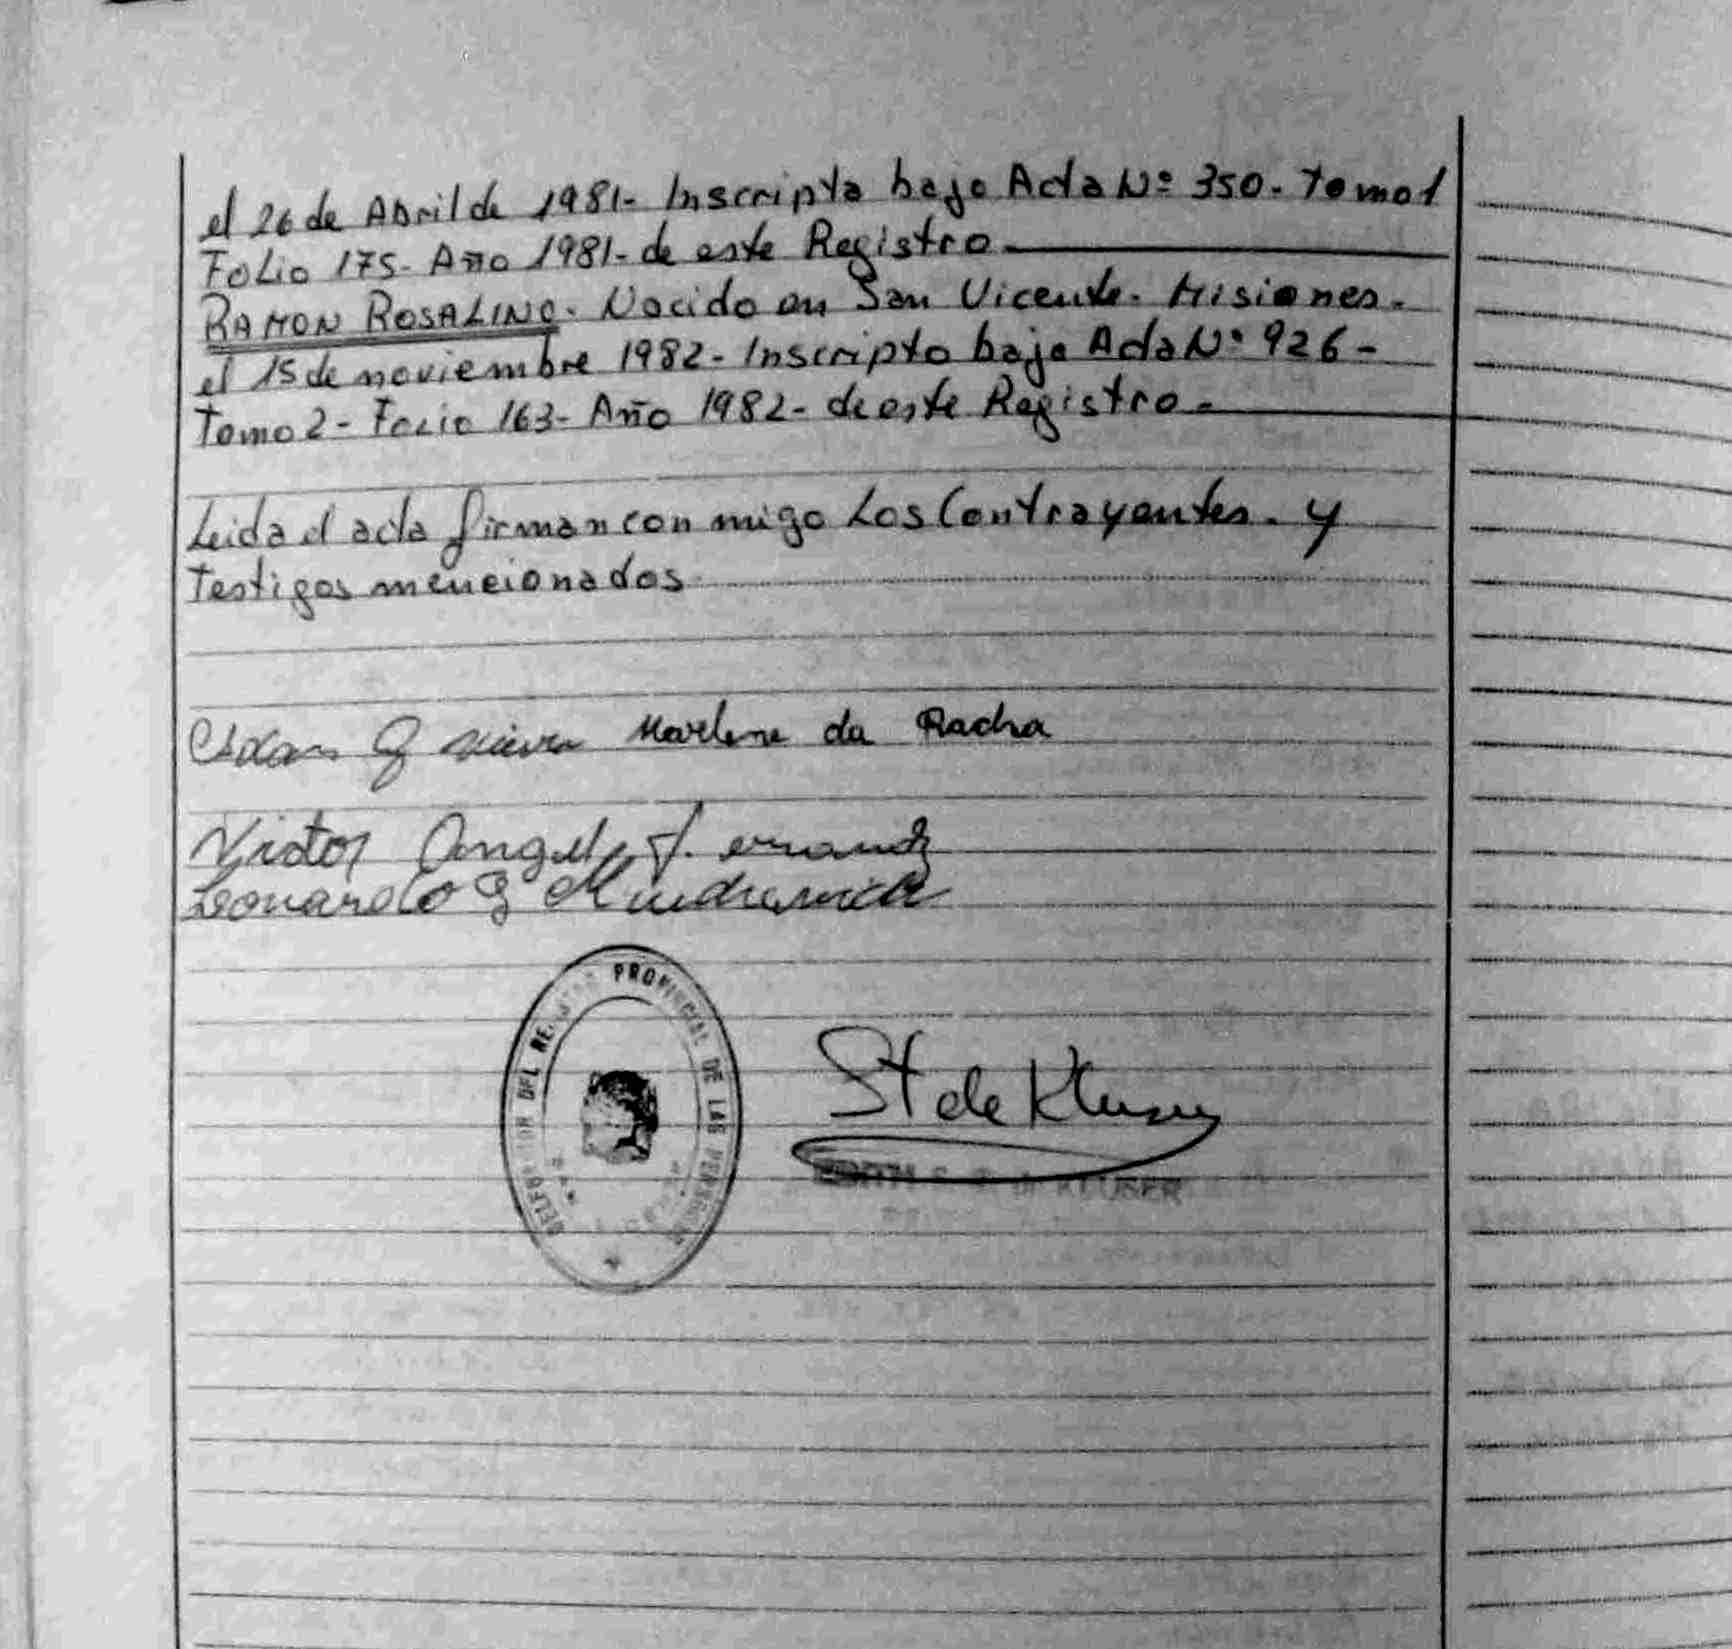 el 26 de Abril de 1981- Inscripta bajo Acta Nº 350- Tomo 1
Folio 175- Año 1981- de este Registro
RAMON ROSALINO- Nacido en San Vicente- Misiones-
el 15 de noviembre 1982- Inscripto bajo Acta Nº 926-
Tomo 2- Folio 163- Año 1982- de este Registro-
Leida el acta firman con migo Los Contrayentes- y
Testigos mencionados
Marlene da Racha
Victor Angel
Leonardo
PROVINCIAL DE LAS PERSONAS
DEL
St de Kluser
DE KLUSER